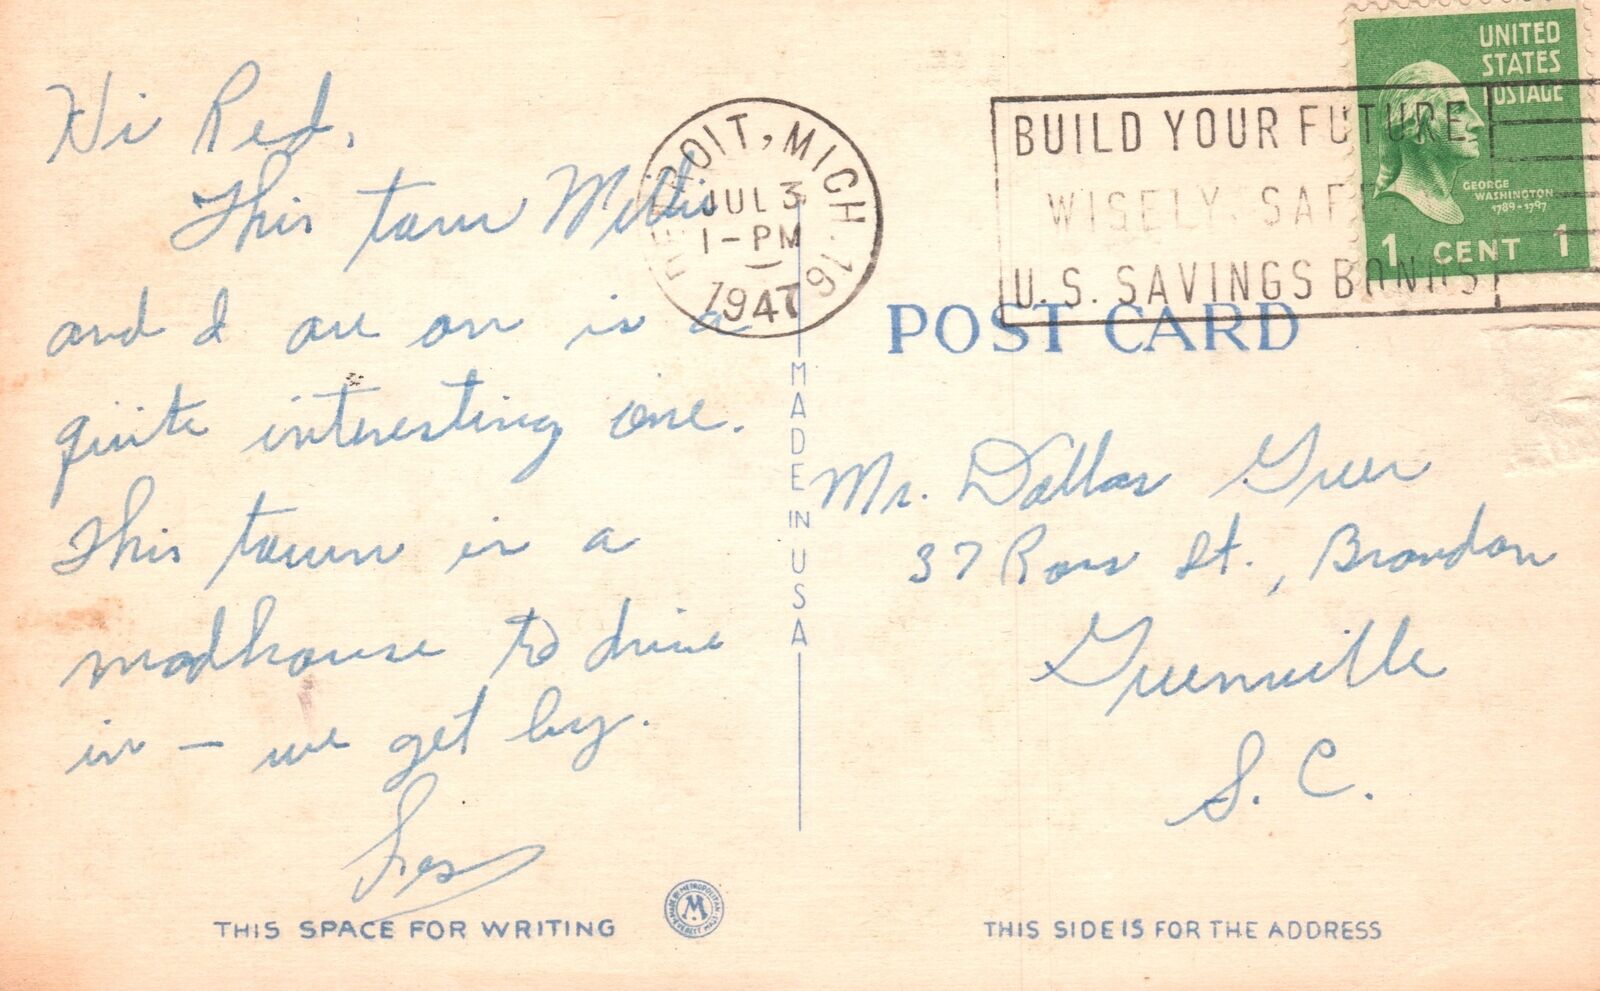 Hi Red,
This tour Millis
and I are on is a
quite interesting one.
This town is a
madhouse to drive
in – we get by.
THIS SPACE FOR WRITING
DETROIT, MICH. 16
JUL 3
1 – PM
1947
BUILD YOUR FUTURE
WISELY, SAFELY
U.S. SAVINGS BONDS
UNITED
STATES
POSTAGE
GEORGE
WASHINGTON
1789-1797
1 CENT 1
POST CARD
MADE IN USA
Mr. Dallas Greer
37 Ross St., Brandon
Greenville
S. C.
MADE BY METROPOLITAN
M
EVERETT, MASS.
THIS SIDE IS FOR THE ADDRESS